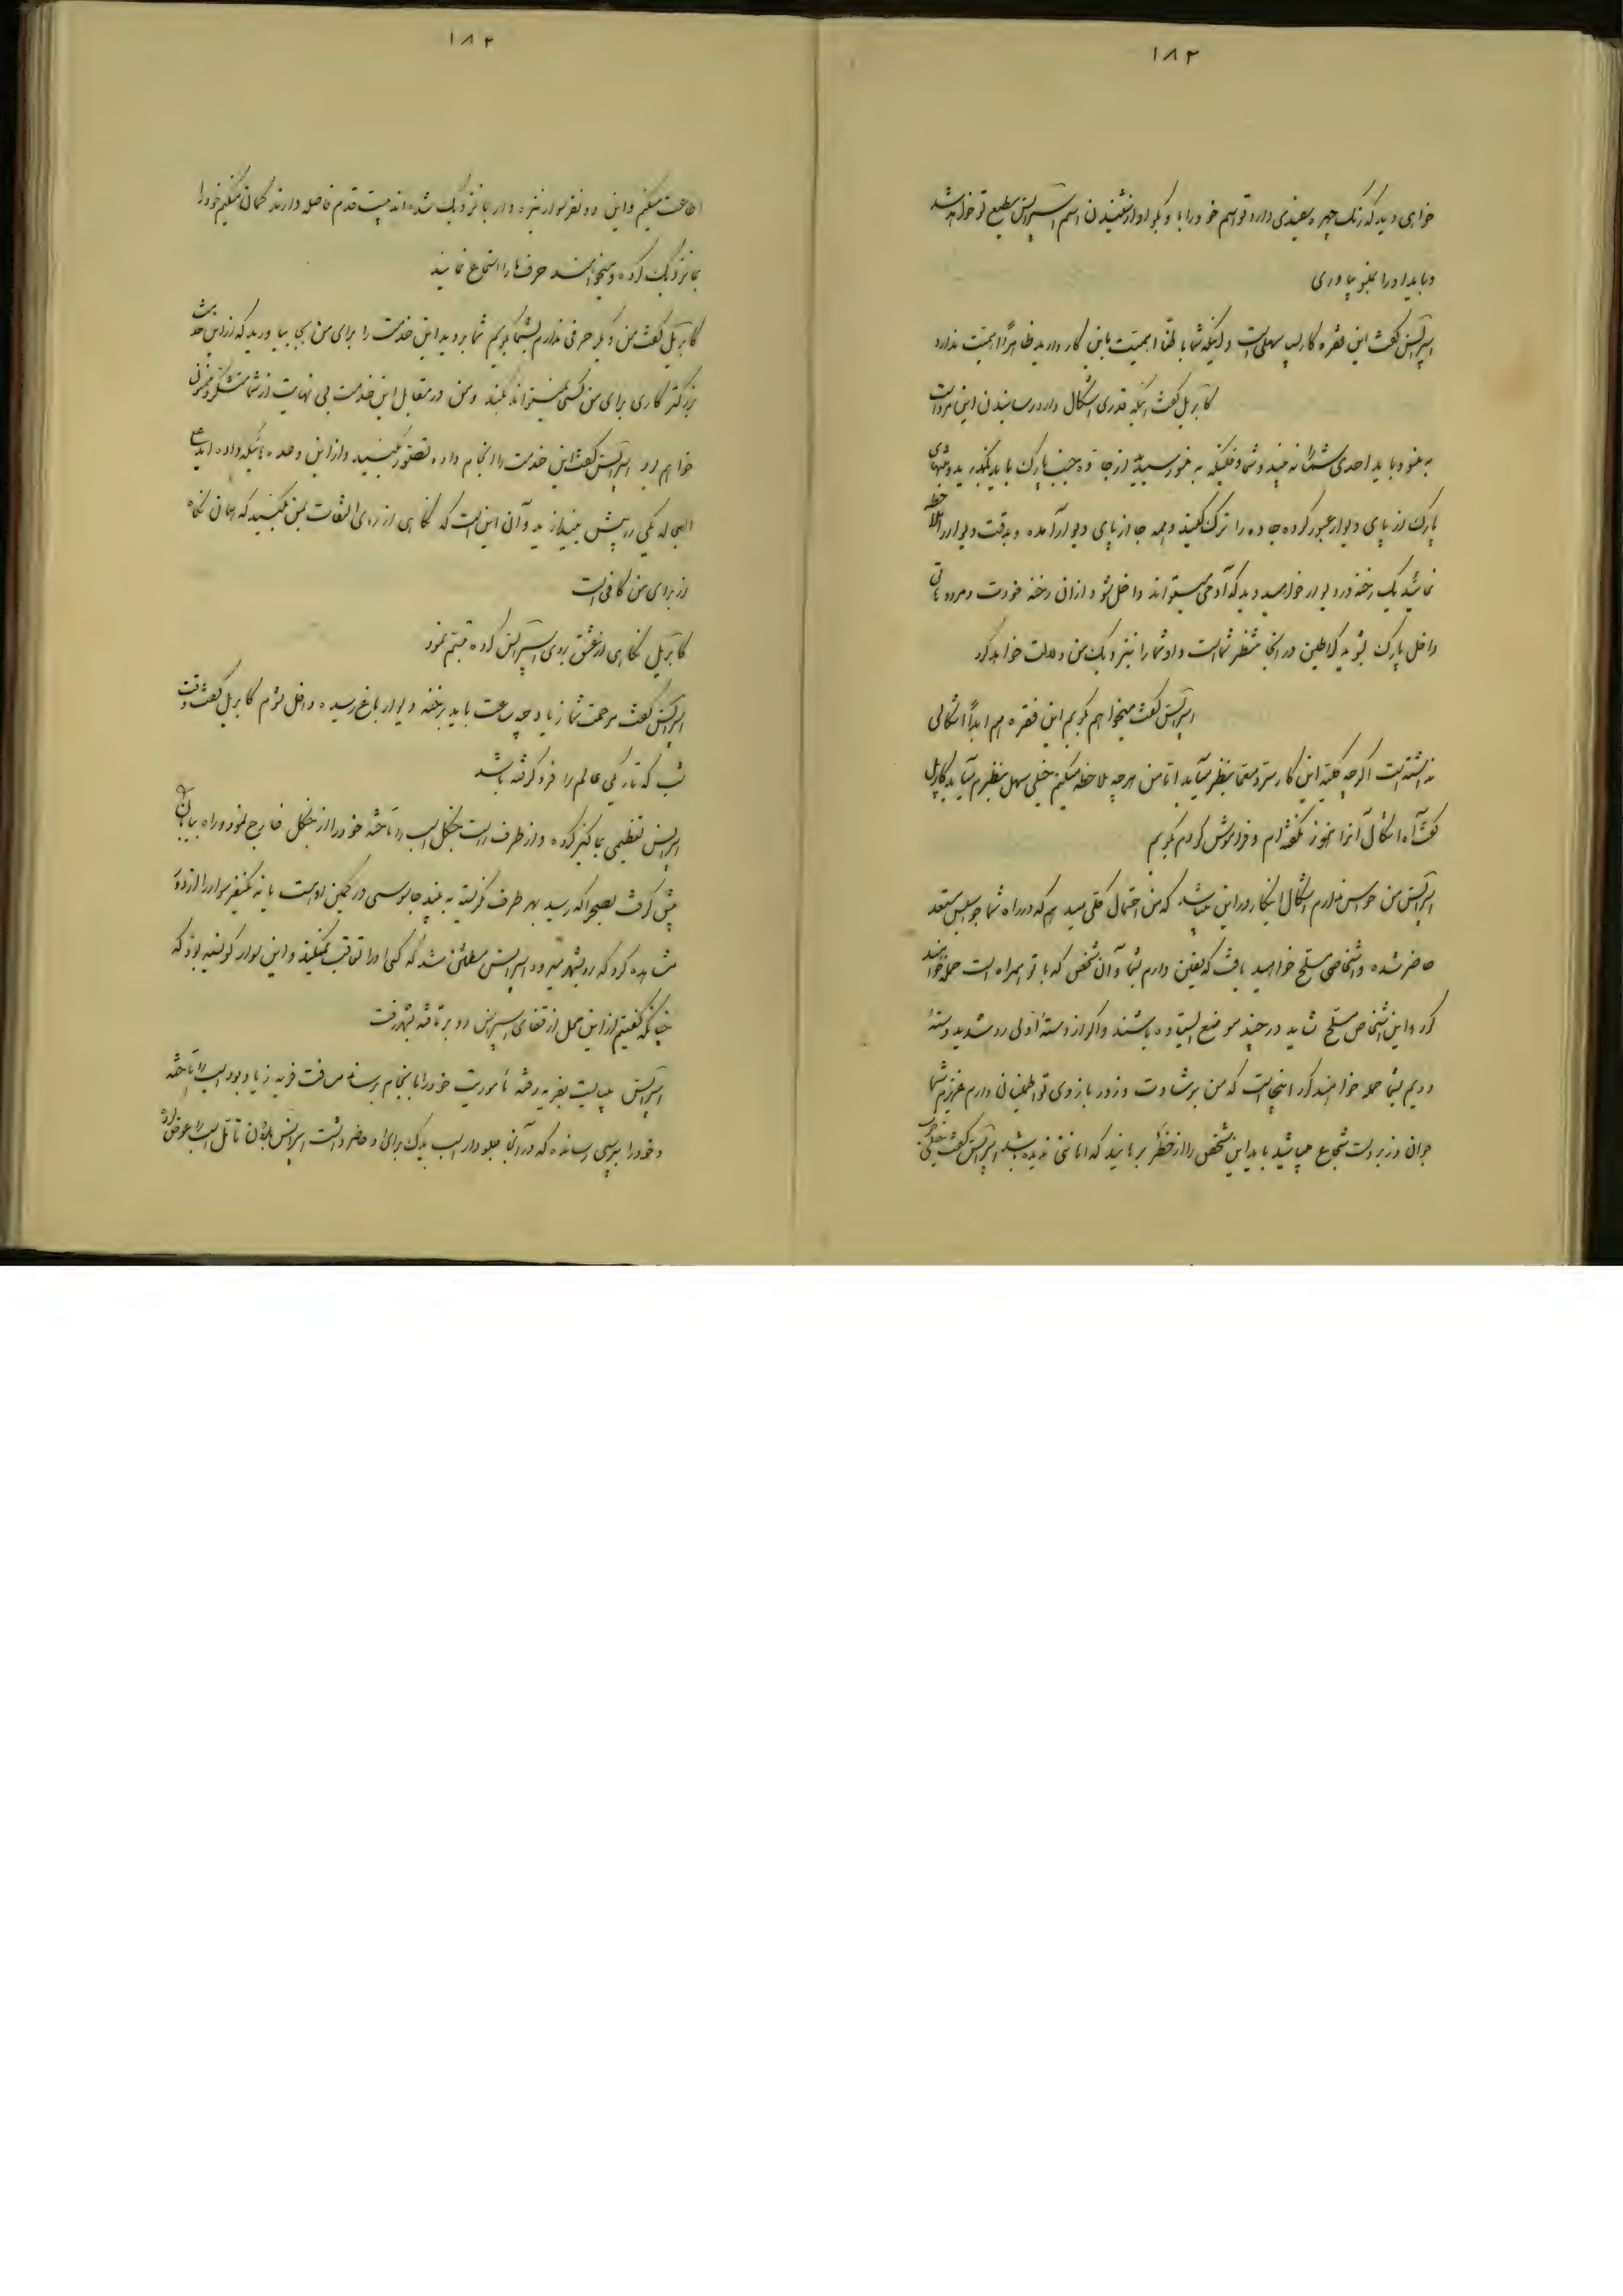 ۱۸۲
خواهی دید که رنگ چهره سفیدی دارد تو اسم خود را با و بگو او از شنیدن اسم اسپرانس مطیع تو خواهد شد
و باید او را بلنو بیاوری
اسپرانس گفت این فقره کار بس سهلی است و لیکه شما باطنا اهمیت باین کار دارید ظاهراً اهمیت ندارد
کابریل گفت بلکه قدری اشکال دارد رسانیدن این مرد است
به لنو و باید احدی شما را نه بیند و شما وقتیکه به لنو رسیدید از جاده جنب پارک باید بگذرید و بمنتهای
پارک از پای دیوار عبور کرده جاده را ترک کنید و همه جا از پای دیوار آمده و بدقت دیوار را ملاحظه
نمائید یک رخنه در دیوار خواهید دید که آدمی میتواند داخل شود از آن رخنه خودت و مرد
داخل پارک بشوید در آنجا منتظر شما است و او شما را بنزدیک من دلالت خواهد کرد
اسپرانس گفت میخواهم بگویم این فقره هم ابداً اشکالی
نداشته است اگرچه کلیه این کار سر و معما بنظر میآید اما من هرچه ملاحظه میکنم خیلی سهل بنظرم میآید کابریل
گفت آه اشکال آنرا هنوز نگفته‌ام و فراموش کردم بگویم
اسپرانس من حواس ندارم اشکال اینکار در این میباشد که من احتمال کلی میدهم که در راه شما جواسیس مستعد
حاضر شده و اشخاص مسلح خواهید یافت که یقین دارم بشما و آن شخص که با تو همراه است حمله خواهند
کرد و این اشخاص مسلح شاید در چند موضع ایستاده باشند و اگر از دسته اولی رد شدید دسته
دویم بشما حمله خواهند کرد اینجاست که من برشادت و زور بازوی تو اطمینان دارم عزیزم شما
جوان و زبردست شجاع میباشید باید این شخص را از خطر برهانید که امانتی نزد شما باشد اسپرانس گفت خیلی خوب
۱۸۳
اطاعت میکنم و این دو نفر سوار نیزه دار بما نزدیک شده‌اند بیست قدم فاصله دارند گمان میکنم خود را
بما نزدیک کرده و میخواهند حرف ما را استماع نمایند
کابریل گفت من دیگر حرفی ندارم بشما بگویم شما بروید این خدمت را برای من بجا بیاورید که از این خدمت
بزرگتر کاری برای من کسی نمیتواند بکند و من در مقابل این خدمت بی نهایت از شما متشکر و ممنون
خواهم بود اسپرانس گفت این خدمت را انجام داده تصور بکنید و از این وعده هائیکه داده‌اید
الحال یکی را پیش بیندازید و آن این است که نگاهی از روی التفات بمن بکنید که همان نگاه
از برای من کافی است
کابریل نگاهی از عشق بروی اسپرانس کرده تبسم نمود
اسپرانس گفت مرحمت شما زیاد چه ساعت باید برخنه دیوار باغ رسیده داخل شوم کابریل گفت وقت
شب که تاریکی عالم را فرو گرفته باشد
اسپرانس تعظیمی بما کرده و از طرف راست جنگل اسب را تاخته خود را از جنگل خارج نمود و راه بیابان
پیش گرفت بصحرا که رسید بهر طرف نگریسته به بیند جاسوسی در کمین اوست یا نه یکنفر سوار را از دور
مشاهده کرد که رو بشهر میرود اسپرانس مطمئن شد که کسی او را تعاقب نمیکند و این سوار بود که
چنانکه گفتیم از این محل از قفای اسپرانس رو بر تافته بشهر رفت
اسپرانس میبایست بقریه رفته مأموریت خود را بانجام برساند مسافت قریه زیاد بود اسب را تاخته
و خود را رسانده که در آنجا جلودار اسب یدک برای او حاضر داشت اسپرانس بدون تأمل اسب را عوض کرد